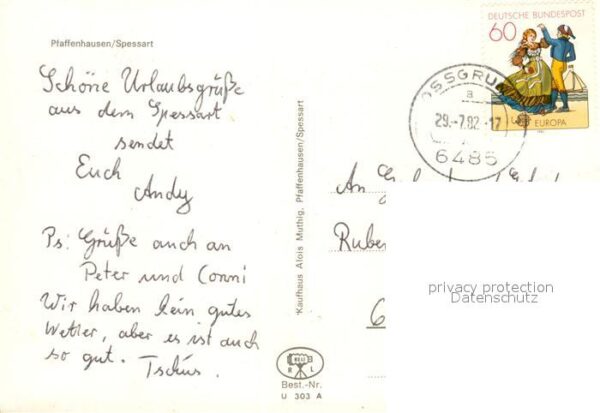 Pfaffenhausen/Spessart
Schöne Urlaubsgrüße
aus dem Spessart
sendet
Euch
Andy
Ps: Grüße auch an
Peter und Conni
Wir haben kein gutes
Wetter, aber es ist auch
so gut. Tschüs.
Kaufhaus Alois Muthig, Pfaffenhausen/Spessart
R L
Best.-Nr.
U 303 A
DEUTSCHE BUNDESPOST
60
EUROPA
OSSGRU
a
29.-7.82-17
6485
An
Rube
6
privacy protection
Datenschutz